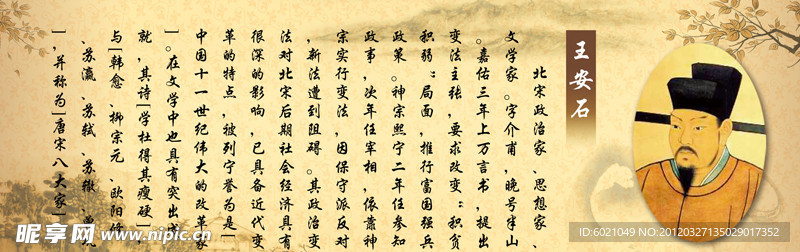 王安石
北宋政治家、思想家、
文学家。字介甫，晚号半山
。嘉佑三年上万言书，提出
变法主张，要求改变：积贫
积弱：局面，推行富国强兵
政策。神宗熙宁二年任参知
政事，次年任宰相，依靠神
宗实行变法，因保守派反对
，新法遭到阻碍。其政治变
法对北宋后期社会经济具有
很深的影响，已具备近代变
革的特点，被列宁誉为是[
中国十一世纪伟大的改革家
]。在文学中也具有突出
就，其诗[学杜得其瘦硬]
与[韩愈、柳宗元、欧阳
、苏瀛、苏轼、苏辙、
]，并称为[唐宋八大家]
昵享网 www.nipic.cn
ID:6021049 NO:20120327135029017352